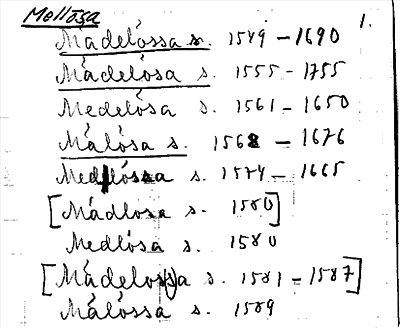 Mellösa 1.
Mádelóssa s. 1549 – 1690
Mádelósa s. 1555 – 1755
Medelósa s. 1561 – 1650
Málósa s. 1562 – 1676
Medlósa s. 1574 – 1665
[Mádlosa s. 1580]
Medlósa s. 1580
[Mádelos(s)a s. 1581 – 1587]
Málóssa s. 1589